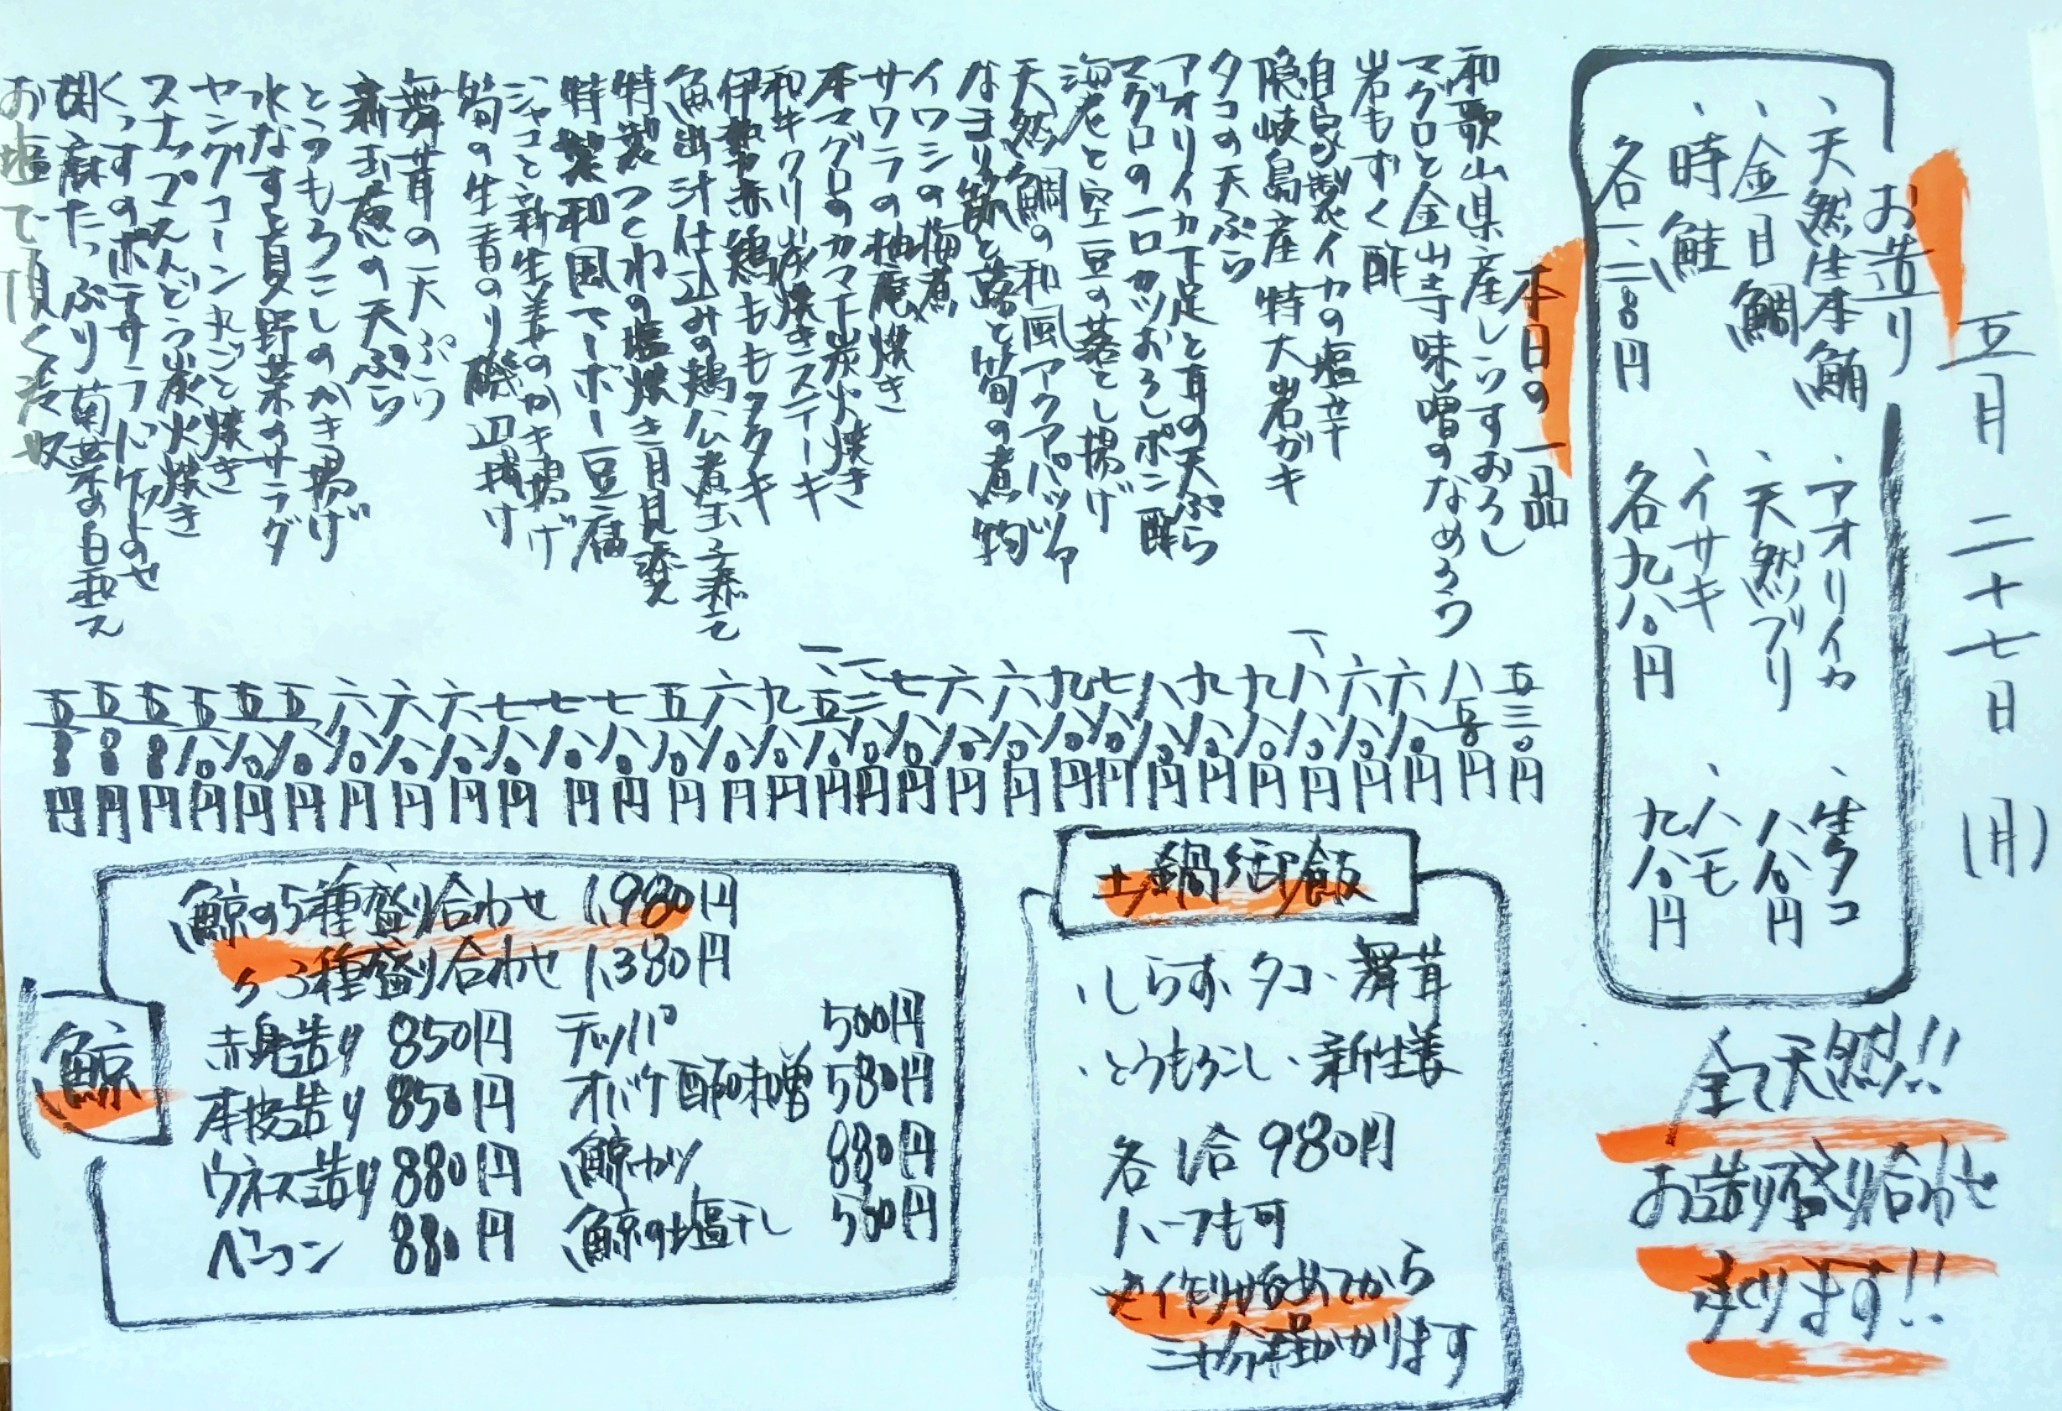 五月二十七日(月)
お造り
、天然生本鮪
、金目鯛
、時鮭
各一、二八〇円
、アオリイカ
、天然ブリ
、イサキ
各九八〇円
、生タコ
八八〇円
、ハモ
九八〇円
全て天然!!
お造り盛り合わせ
承ります!!
本日の一品
和歌山県産しらすおろし 五三〇円
マグロと金山寺味噌のなめろう 八五〇円
岩もずく酢 六八〇円
自家製イカの塩辛 六八〇円
隠岐島産 特大岩ガキ 一、八八〇円
タコの天ぷら 九八〇円
アオリイカ下足と耳の天ぷら 九八〇円
マグロの一口カツおろしポン酢 八八〇円
海老と空豆の落とし揚げ 七八〇円
天然鯛の和風アクアパッツァ 九八〇円
と蕗と筍の煮物 六八〇円
イワシの梅煮 六八〇円
サワラの柚庵焼き 七八〇円
本マグロのカマ下炭火焼き 一、二八〇円
和牛クリ炭焼きステーキ 一、五八〇円
伊勢赤鶏ももタタキ 九八〇円
魚出汁仕込みの鶏公煮玉子添え 六八〇円
特製つくねの塩焼き月見添え 五八〇円
特製和風マーボー豆腐 七八〇円
ジャコと新生姜のかき揚げ 七八〇円
筍の生青のり磯辺揚げ 七八〇円
舞茸の天ぷら 六八〇円
新玉葱の天ぷら 六八〇円
とうもろこしのかき揚げ 六八〇円
水なすと貝野菜のサラダ 五八〇円
ヤングコーン丸ごと焼き 五八〇円
スナップえんどう炭火焼き 五八〇円
くっすのポテサラ 五〇〇円
胡麻たっぷり菊菜の白和え 五〇〇円
お塩で頂く冷奴 五〇〇円
土鍋御飯
・しらす・タコ・舞茸
・とうもろこし・新生姜
各1合 980円
ハーフも可
お作り始めてから
三十分程かかります
鯨
鯨の5種盛り合わせ 1,980円
〃 3種盛り合わせ 1,380円
赤身造り 850円
本皮造り 850円
ウネス造り 880円
ベーコン 880円
テッパ 500円
オバケ酢味噌 580円
鯨カツ 880円
鯨の塩干し 580円